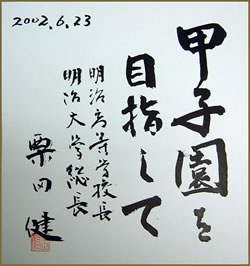 甲子園を
目指して
明治高等学校長
明治大学総長
栗田健
2002.6.23